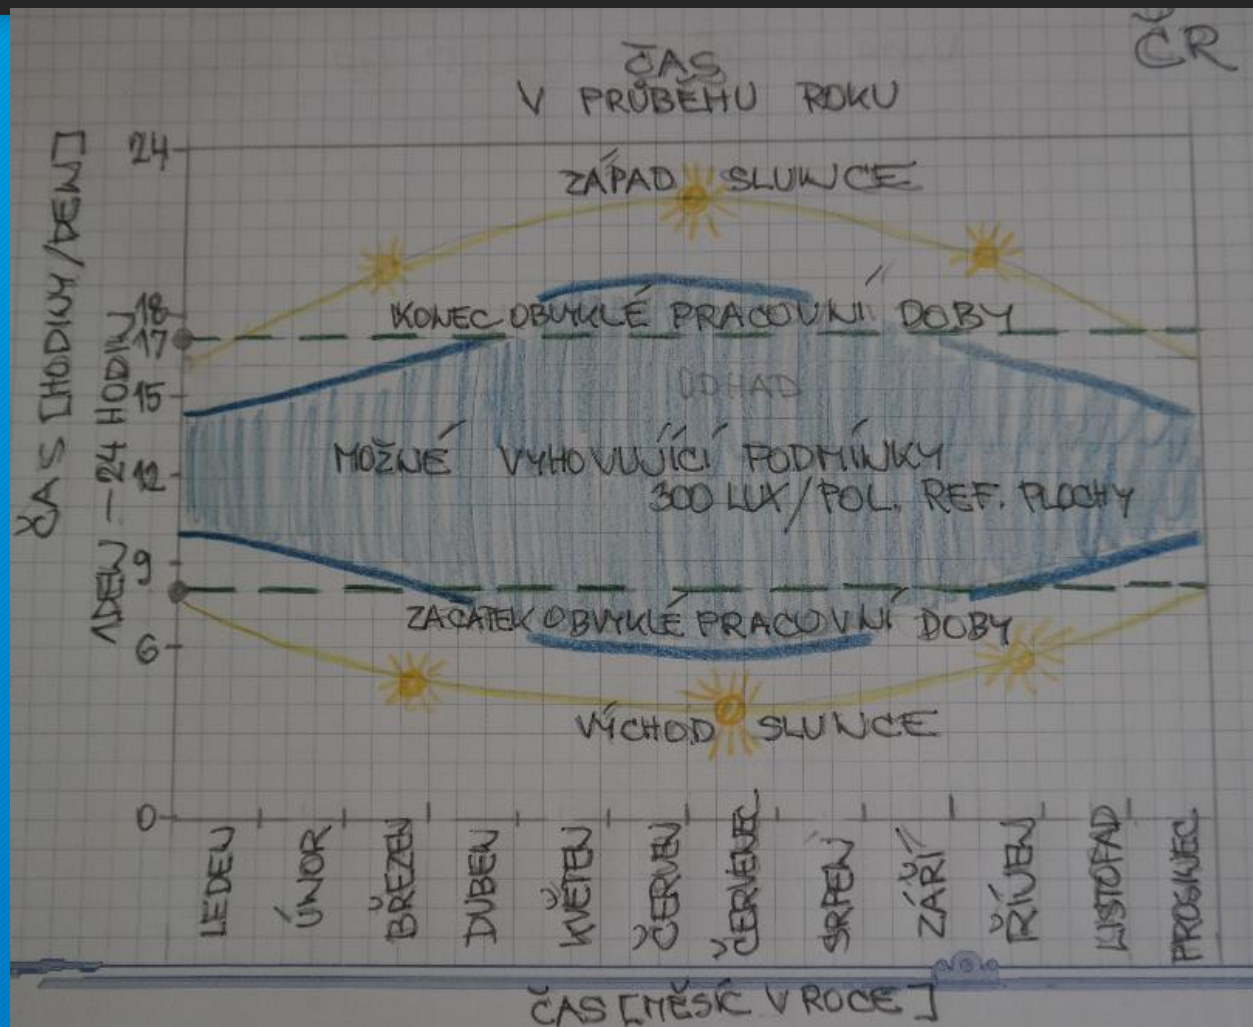 ČR
ČAS
V PRŮBĚHU ROKU
ČAS [HODINY/DEN]
1DEN – 24 HODIN
24
18
17
15
12
9
6
0
ZÁPAD SLUNCE
KONEC OBVYKLÉ PRACOVNÍ DOBY
ODHAD
MOŽNÉ VYHOVUJÍCÍ PODMÍNKY
300 LUX/POL. REF. PLOCHY
ZAČÁTEK OBVYKLÉ PRACOVNÍ DOBY
VÝCHOD SLUNCE
LEDEN
ÚNOR
BŘEZEN
DUBEN
KVĚTEN
ČERVEN
ČERVENEC
SRPEN
ZÁŘÍ
ŘÍJEN
LISTOPAD
PROSINEC
ČAS [MĚSÍC V ROCE]